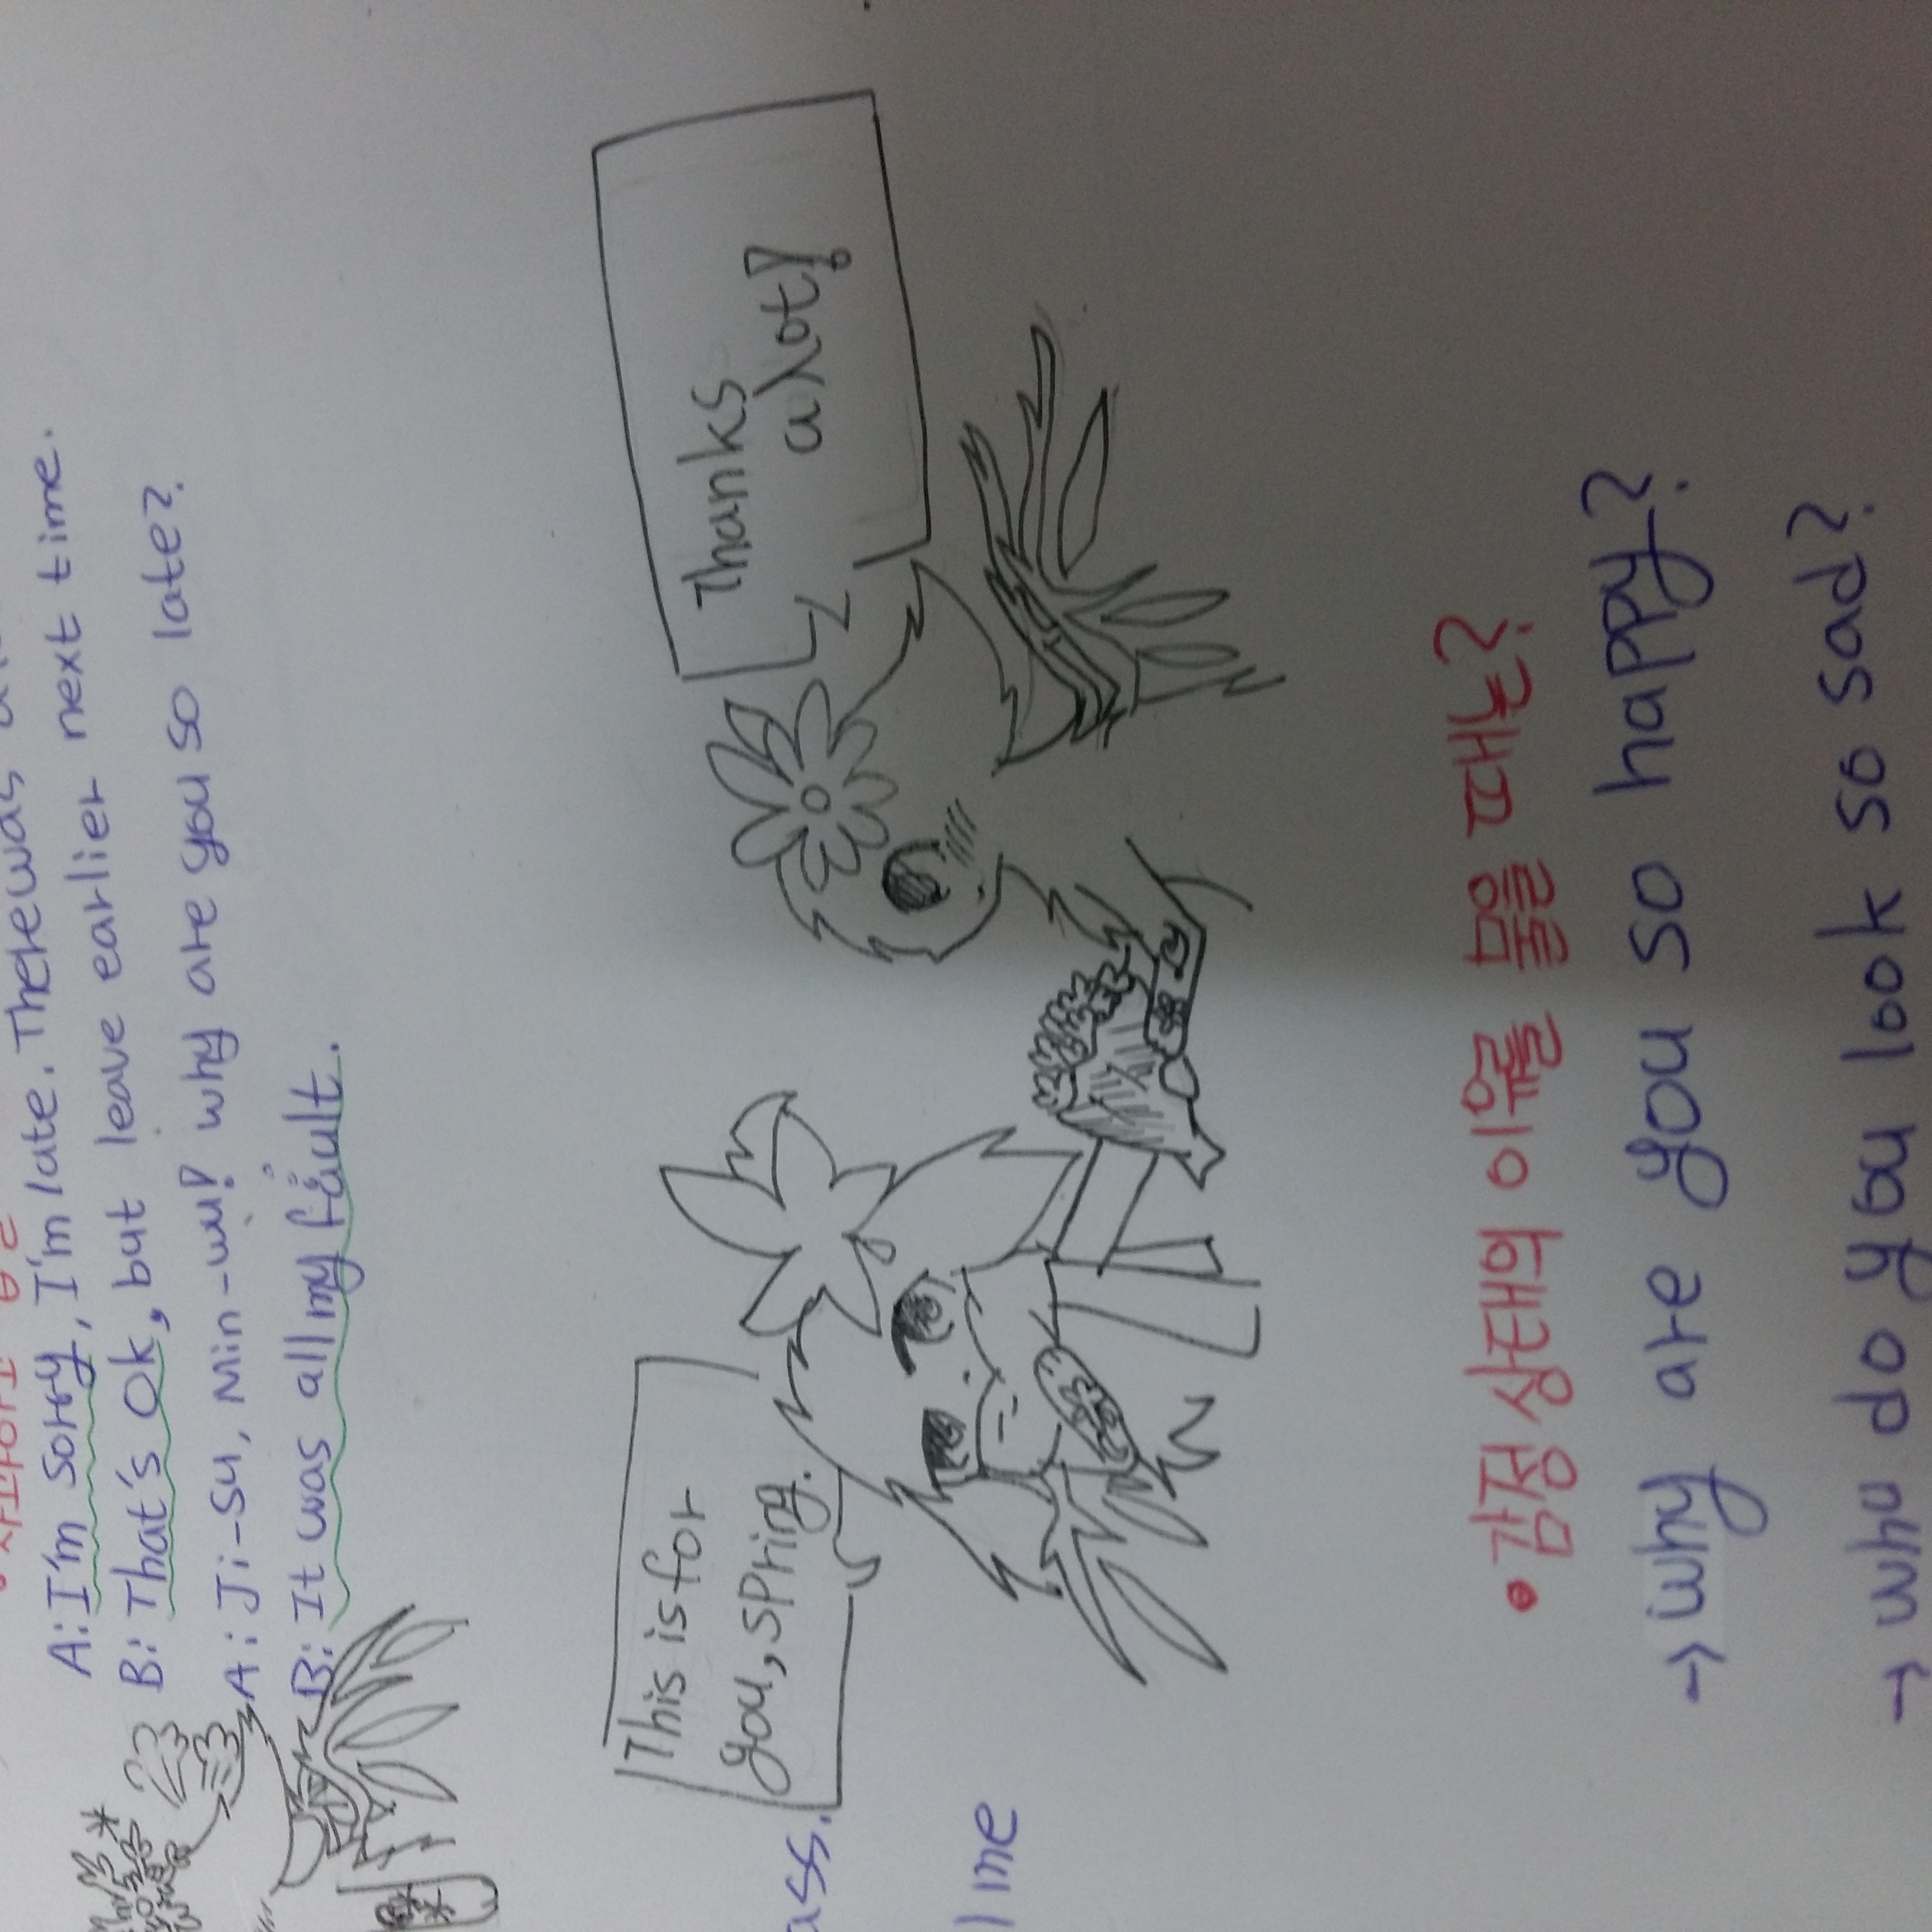 A: I'm sorry, I'm late. There was
B: That's Ok, but leave earlier next time.
A: Ji-su, Min-wu! why are you so late?
B: It was all my fault.
This is for
you, spring.
Thanks
a lot!
ass.
line
• 감정 상태의 이유를 물을 때는?
→ why are you so happy?
→ why do you look so sad?